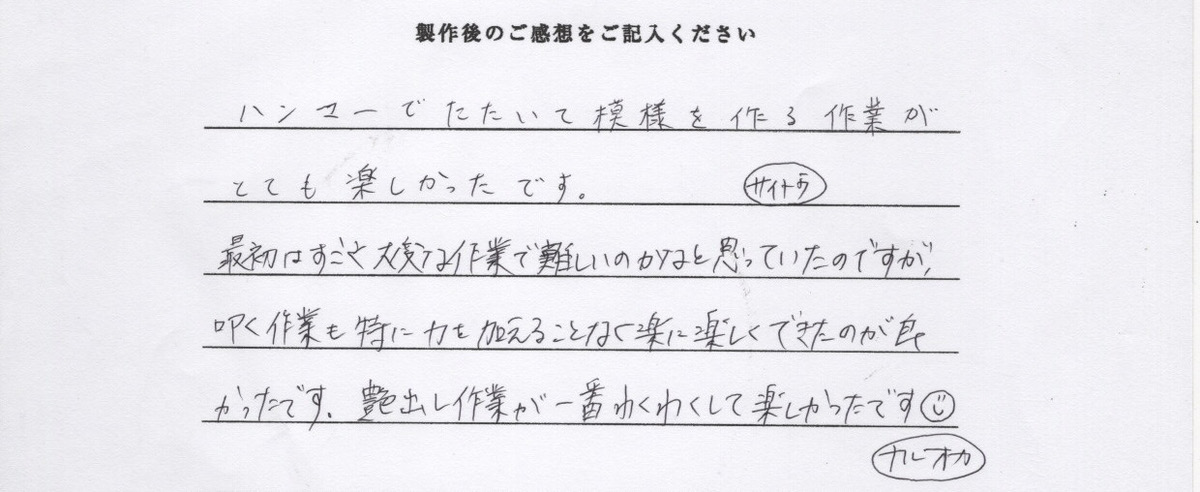 製作後のご感想をご記入ください
ハンマーでたたいて模様を作る作業が
とても楽しかったです。 サイトう
最初はすごく大変な作業で難しいのかなと思っていたのですが、
叩く作業も特に力を加えることなく楽に楽しくできたのが良
かったです。艶出し作業が一番わくわくして楽しかったです☺
ナルオカ